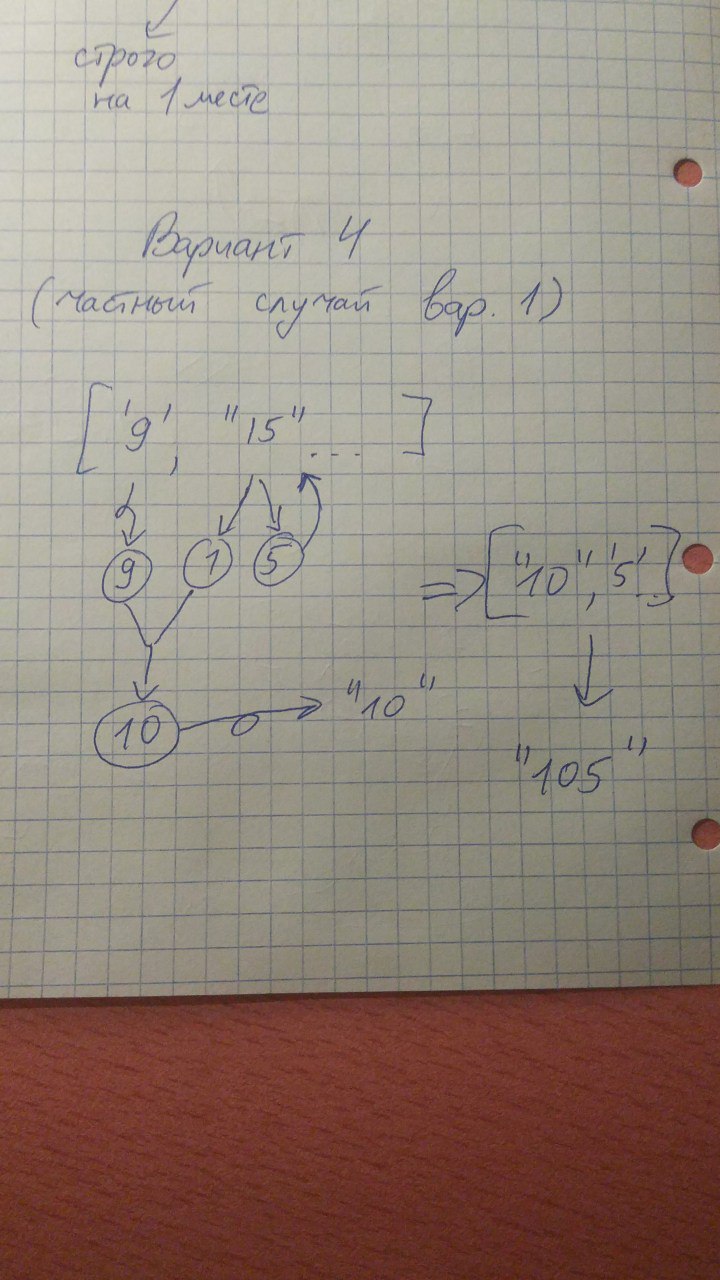 строго
на 1 месте
Вариант 4
(частный случай вар. 1)
['9', "15" ... ]
9 1 5
=> ["10", '5'...]
10 "10"
"105"